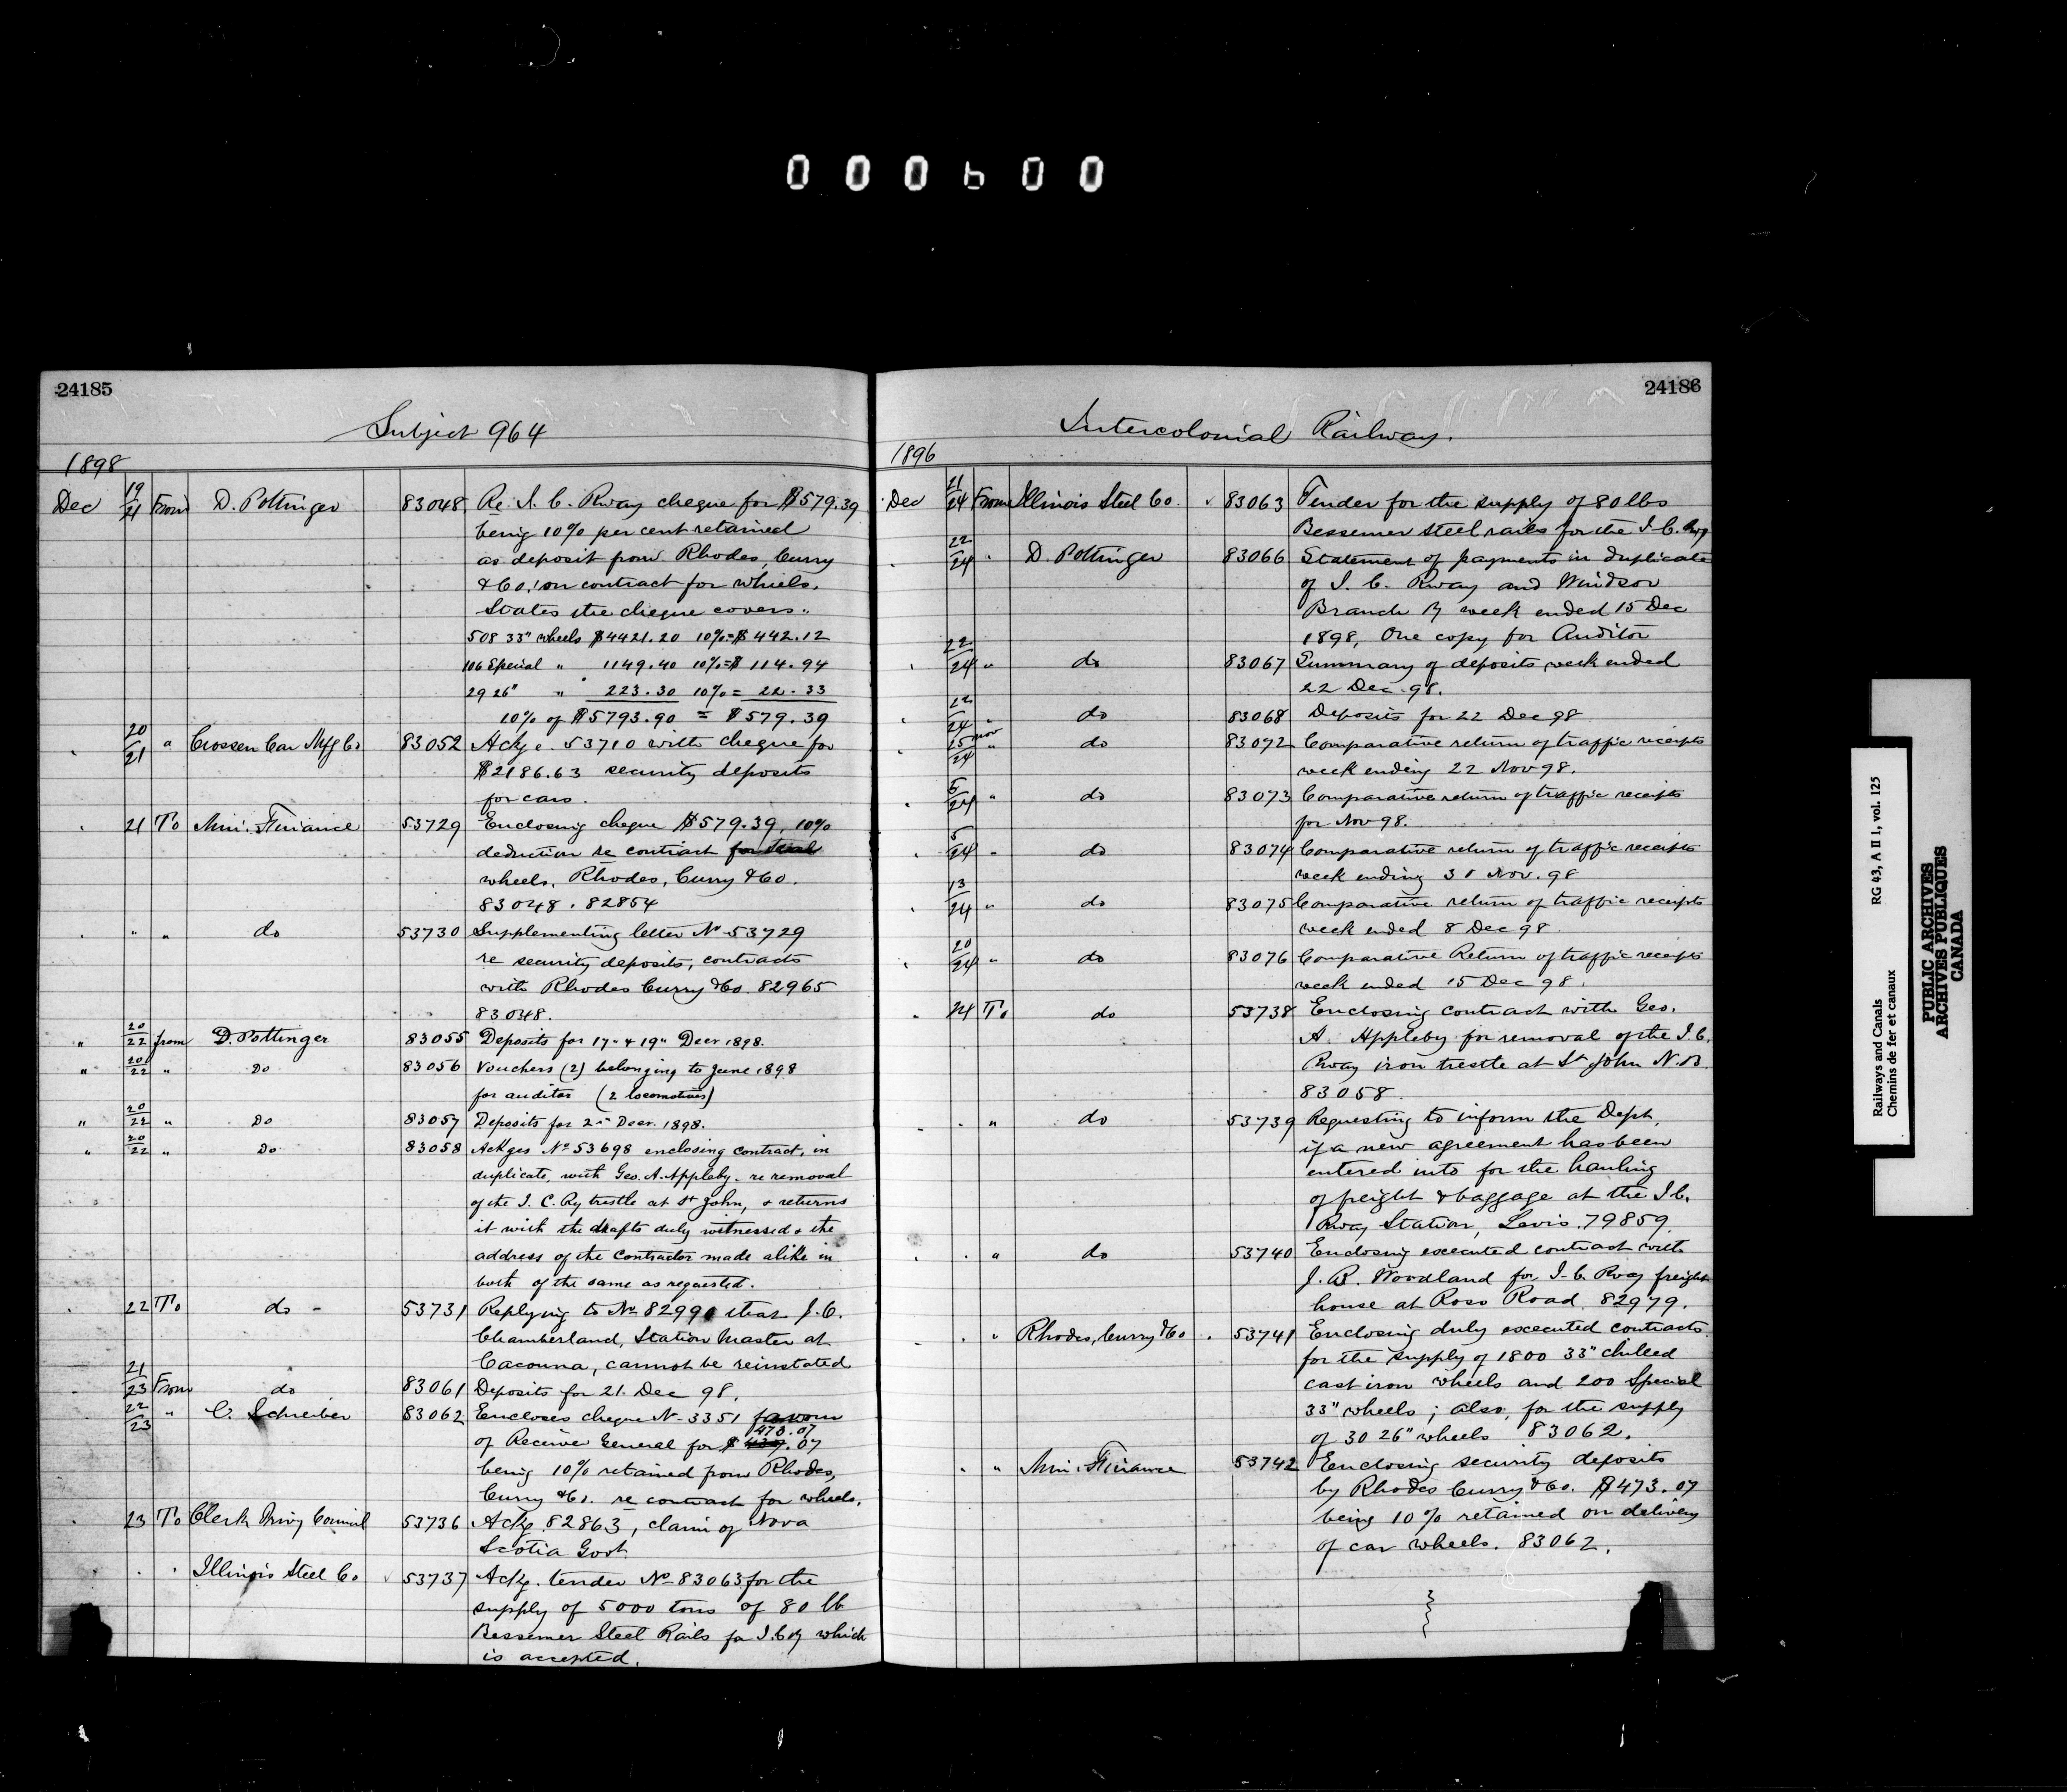 000600
24185
Subject 964
1898
Dec 19/21 From D. Pottinger 83048 Re. I. C. Rway cheque for $579.39
being 10% per cent retained
as deposit from Rhodes, Curry
& Co. on contract for wheels.
States the cheque covers..
508 33" wheels $4421.20 10%=$442.12
106 Special " 1149.40 10%=$ 114.94
29 26" " 223.30 10%= 22.33
10% of $5793.90 = $579.39
20/21 " Crossen Car Mfg Co 83052 Ackg e. 53710 with cheque for
$2186.63 security deposits
for cars.
21 To Min. Finance 53729 Enclosing cheque $579.39, 10%
deduction re contract for
wheels, Rhodes, Curry & Co.
83048. 82854
" " do 53730 Supplementing letter No 53729
re security deposits, contracts
with Rhodes Curry & Co. 82965
83048.
" 20/22 from D. Pottinger 83055 Deposits for 17" & 19" Decr 1898.
" 20/22 " Do 83056 Vouchers (2) belonging to June 1898
for auditor (2 locomotives)
" 20/22 " Do 83057 Deposits for 2" Decr. 1898.
" 20/22 " Do 83058 Ackges No 53698 enclosing contract, in
duplicate, with Geo. A. Appleby. re removal
of the I. C. Ry trestle at St John, & returns
it with the drafts duly witnessed & the
address of the Contractor made alike in
both of the same as requested.
22 To do - 53731 Replying to No 82990 that J. C.
Chamberland, Station Master at
Cacouna, cannot be reinstated
21/23 From do 83061 Deposits for 21. Dec 98.
22/23 " C. Schreiber 83062 Encloses cheque No 3351 favour
473.07
of Receiver General for $ 437.07
being 10% retained from Rhodes,
Curry & Co. re contract for wheels.
23 To Clerk Privy Council 53736 Ackg 82863, claim of Nova
Scotia Govt
Illinois Steel Co 53737 Ackg. tender No 83063 for the
supply of 5000 tons of 80 lb
Bessemer Steel Rails for I.C.Ry which
is accepted.
24186
Intercolonial Railway.
1896
Dec 21/24 From Illinois Steel Co. 83063 Tender for the supply of 80 lbs
Bessemer steel rails for the I. C. Rwy
22/24 " D. Pottinger 83066 Statement of payments in duplicate
of I. C. Rway and Windsor
Branch Ry week ended 15 Dec
1898, One copy for Auditor
22/24 " do 83067 Summary of deposits week ended
22 Dec. 98.
22/24 " do 83068 Deposits for 22 Dec 98
25 Nov/24 " do 83072 Comparative return of traffic receipts
week ending 22 Nov 98.
5/24 " do 83073 Comparative return of traffic receipts
for Nov 98.
5/24 " do 83074 Comparative return of traffic receipts
week ending 30 Nov. 98
13/24 " do 83075 Comparative return of traffic receipts
week ended 8 Dec 98.
20/24 " do 83076 Comparative Return of traffic receipts
week ended 15 Dec 98.
24 To do 53738 Enclosing contract with Geo.
A. Appleby for removal of the I. C.
Rway iron trestle at St John N. B.
83058.
" do 53739 Requesting to inform the Dept,
if a new agreement has been
entered into for the hauling
of freight & baggage at the I. C.
Rway Station, Levis. 79859.
" do 53740 Enclosing executed contract with
J. B. Woodland for I. C. Rway freight
house at Ross Road. 82979.
" Rhodes, Curry & Co 53741 Enclosing duly executed contracts
for the supply of 1800 33" chilled
cast iron wheels and 200 Special
33" wheels; also, for the supply
of 30 26" wheels 83062.
" Min. Finance 53742 Enclosing security deposits
by Rhodes Curry & Co. $473.07
being 10% retained on delivery
of car wheels. 83062.
Railways and Canals RG 43, A II 1, vol. 125
Chemins de fer et canaux
PUBLIC ARCHIVES
ARCHIVES PUBLIQUES
CANADA